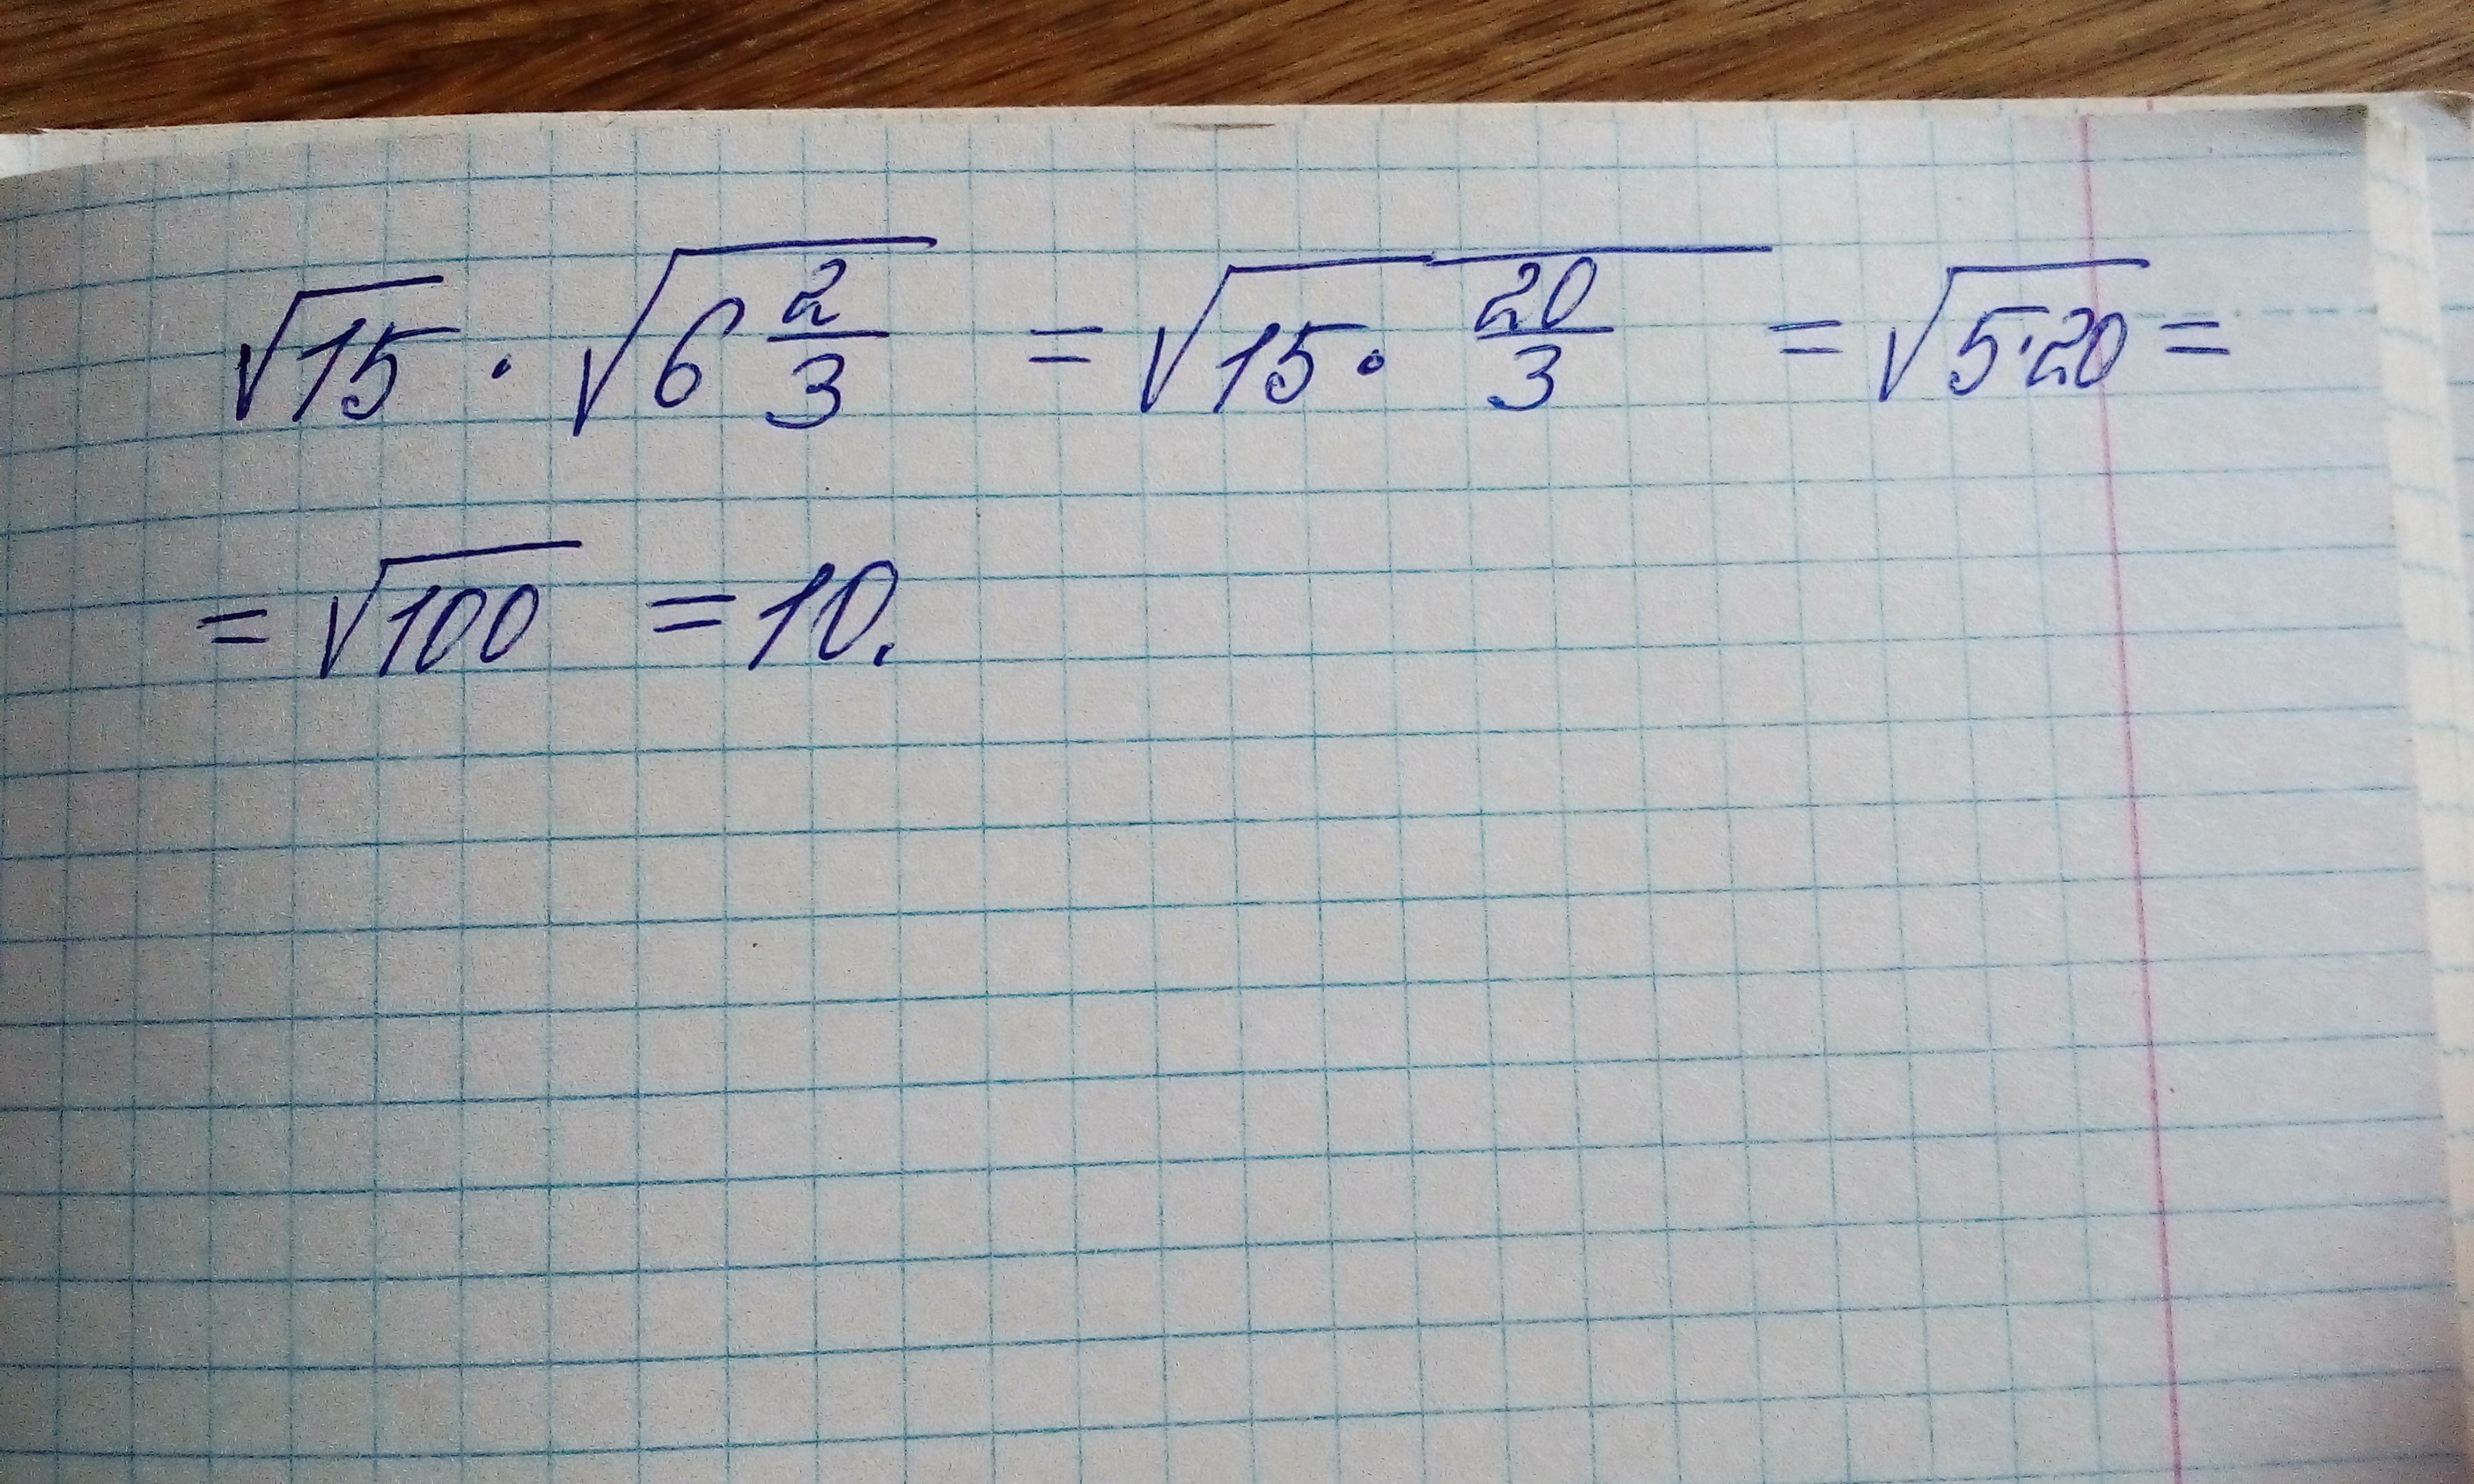 √15 · √(6 2/3) = √(15 · 20/3) = √(5·20) =
= √100 = 10.